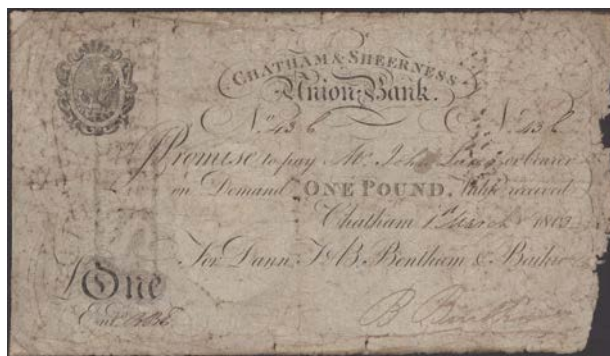 CHATHAM & SHEERNESS
Union Bank.
No. 436 No. 436
I Promise to pay Mr. John or bearer
on Demand ONE POUND. Value received
Chatham 1st March
For Dann, J. B. Bentham &
£ One
Entd.
B Bentham